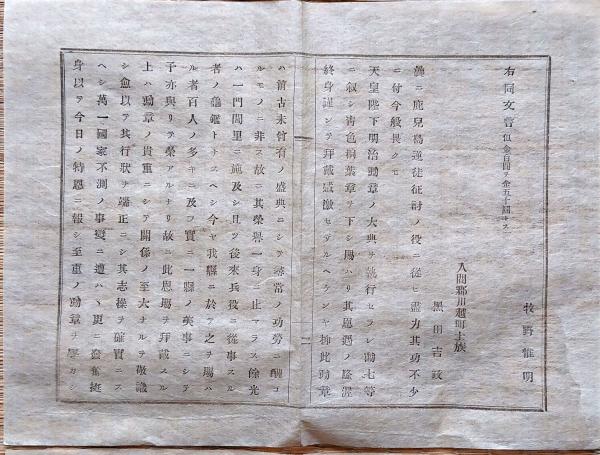 右同文 賞但金百圓ヲ金五十圓ニ作ル
牧野惟明
入間郡川越町士族
黑田吉政
曩ニ鹿兒島逆徒征討ノ役ニ從ヒ盡力其功不少
ニ付今般畏クモ
天皇陛下明治勳章ノ大典ヲ執行セラレ勳七等
ニ叙シ靑色桐葉章ヲ下シ賜ハリ其恩遇ノ隆渥
終身謹シテ拜戴感激セサルヘケンヤ抑此勳章
ハ前古未曾有ノ盛典ニシテ尋常ノ功勞ニ酬コ
ルモノニ非ス故ニ其榮譽一身ニ止マラス餘光
ハ一門閭里ニ施及シ且ツ後來兵役ニ從事スル
者ノ龜鑑トナスヘシ今ヤ我縣ニ於テ之ヲ賜ハ
ル者百人ノ多キニ及フ實ニ一縣ノ美事ニシテ
予亦與リテ榮アルナリ故ニ此恩賜ヲ拜戴スル
上ハ勳章ノ貴重ニシテ關係ノ至大ナルヲ敬識
シ愈以テ其行狀ヲ端正ニシ其志操ヲ確實ニス
ヘシ萬一國家不測ノ事變ニ遭ハヽ更ニ奮奮挺
身以テ今日ノ特恩ニ報シ至重ノ勳章ヲ辱カシ